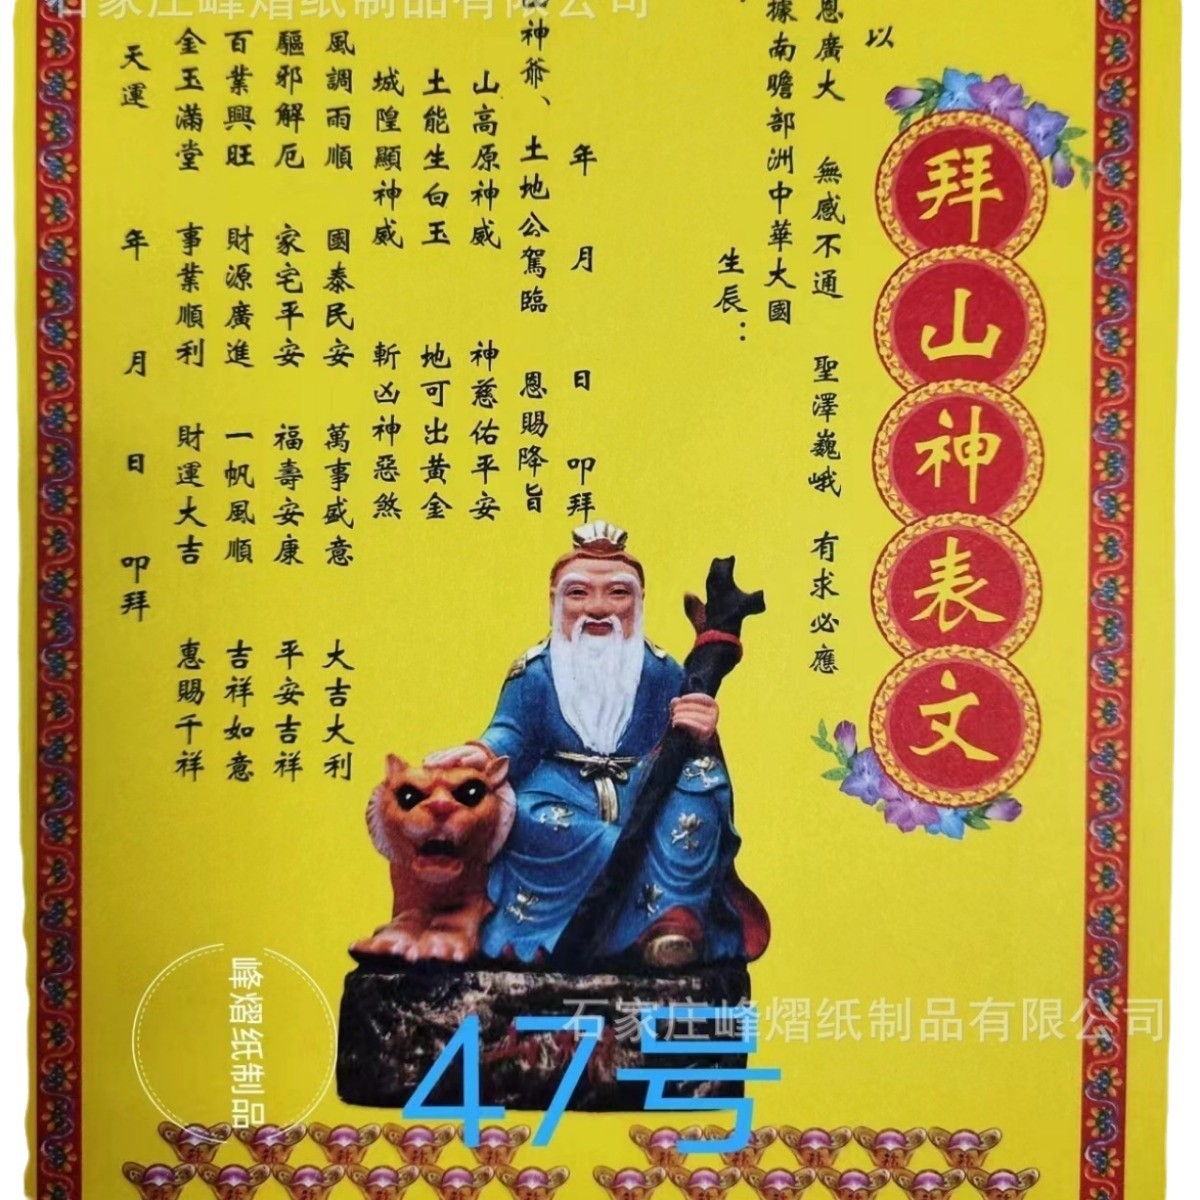 石家庄峰熠纸制品有限公司
拜山神表文
以
恩廣大 無感不通 聖澤巍峨 有求必應
據南瞻部洲中華大國
生辰：
年 月 日 叩拜
神爺、土地公駕臨 恩賜降旨
山高原神威 神慈佑平安
土能生白玉 地可出黃金
城隍顯神威 斬凶神惡煞
風調雨順 國泰民安 萬事盛意 大吉大利
驅邪解厄 家宅平安 福壽安康 平安吉祥
百業興旺 財源廣進 一帆風順 吉祥如意
金玉滿堂 事業順利 財運大吉 惠賜千祥
天運 年 月 日 叩拜
峰熠纸制品
石家庄峰熠纸制品有限公司
47号